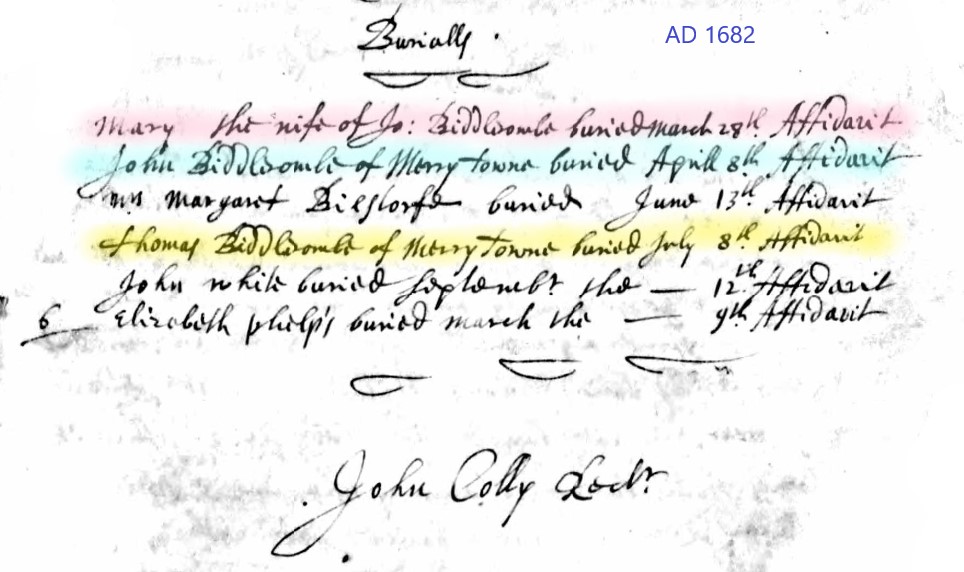 Burialls.
AD 1682
Mary the wife of Jo: Biddlecombe buried March 28th Affidavit
John Biddlecombe of Merry towne buried Aprill 8th Affidavit
Mrs Margaret Bilstorfe buried June 13th Affidavit
Thomas Biddlecombe of Merry Towne buried July 8th Affidavit
John white buried Septembr the — 12th Affidavit
6 Elizebeth phelps buried march the — 9th Affidavit
John Colly Rectr